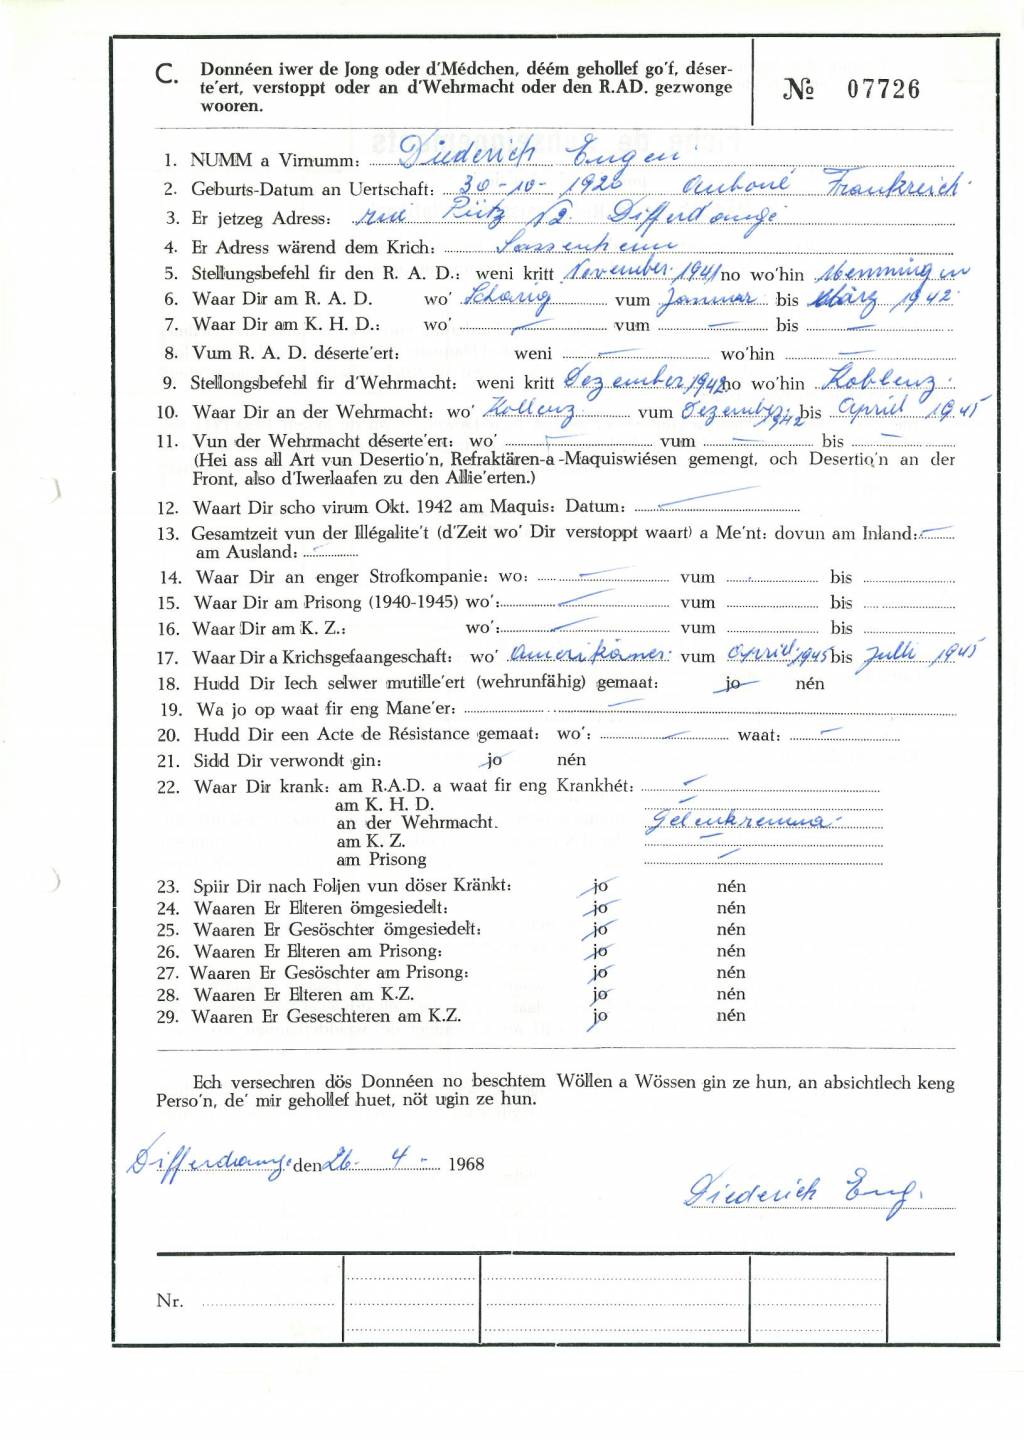 C. Donnéen iwer de Jong oder d'Médchen, déém gehollef go'f, déser-
te'ert, verstoppt oder an d'Wehrmacht oder den R.AD. gezwonge
wooren.
№ 07726
1. NUMM a Virnumm: Diederich Eugen
2. Geburts-Datum an Uertschaft: 30-10-1920 Auboué Frankreich
3. Er jetzeg Adress: rue Pütz 12 Differdange
4. Er Adress wärend dem Krich: Sassenheim
5. Stellungsbefehl fir den R. A. D.: weni kritt November 1941 no wo'hin Memmingen
6. Waar Dir am R. A. D. wo' vum Januar bis März 1942
7. Waar Dir am K. H. D.: wo' — vum — bis —
8. Vum R. A. D. déserte'ert: weni — wo'hin —
9. Stellongsbefehl fir d'Wehrmacht: weni kritt Dezember 1942 no wo'hin Koblenz
10. Waar Dir an der Wehrmacht: wo' Koblenz vum Dezember 1942 bis Aprril 1945
11. Vun der Wehrmacht déserte'ert: wo' — vum — bis —
(Hei ass all Art vun Desertio'n, Refraktären-a-Maquiswiésen gemengt, och Desertio'n an der
Front, also d'Iwerlaafen zu den Allie'erten.)
12. Waart Dir scho virum Okt. 1942 am Maquis: Datum: —
13. Gesamtzeit vun der Illégalite't (d'Zeit wo' Dir verstoppt waart) a Me'nt: dovun am Inland: —
am Ausland: —
14. Waar Dir an enger Strofkompanie: wo: — vum bis
15. Waar Dir am Prisong (1940-1945) wo': — vum bis
16. Waar Dir am K. Z.: wo': — vum bis
17. Waar Dir a Krichsgefaangeschaft: wo' Amerikäner vum Aprril 1945 bis Julli 1945
18. Hudd Dir Iech selwer mutille'ert (wehrunfähig) gemaat: jo nén
19. Wa jo op waat fir eng Mane'er: —
20. Hudd Dir een Acte de Résistance gemaat: wo': — waat: —
21. Sidd Dir verwondt gin: jo nén
22. Waar Dir krank: am R.A.D. a waat fir eng Krankhét: —
am K. H. D. —
an der Wehrmacht. Gelenkremma
am K. Z. —
am Prisong —
23. Spiir Dir nach Foljen vun döser Kränkt: jo nén
24. Waaren Er Elteren ömgesiedelt: jo nén
25. Waaren Er Gesöschter ömgesiedelt: jo nén
26. Waaren Er Elteren am Prisong: jo nén
27. Waaren Er Gesöschter am Prisong: jo nén
28. Waaren Er Elteren am K.Z. jo nén
29. Waaren Er Geseschteren am K.Z. jo nén
Ech versechren dös Donnéen no beschtem Wöllen a Wössen gin ze hun, an absichtlech keng
Perso'n, de' mir gehollef huet, nöt ugin ze hun.
Differdange den 26-4- 1968
Diederich Eug.
Nr.